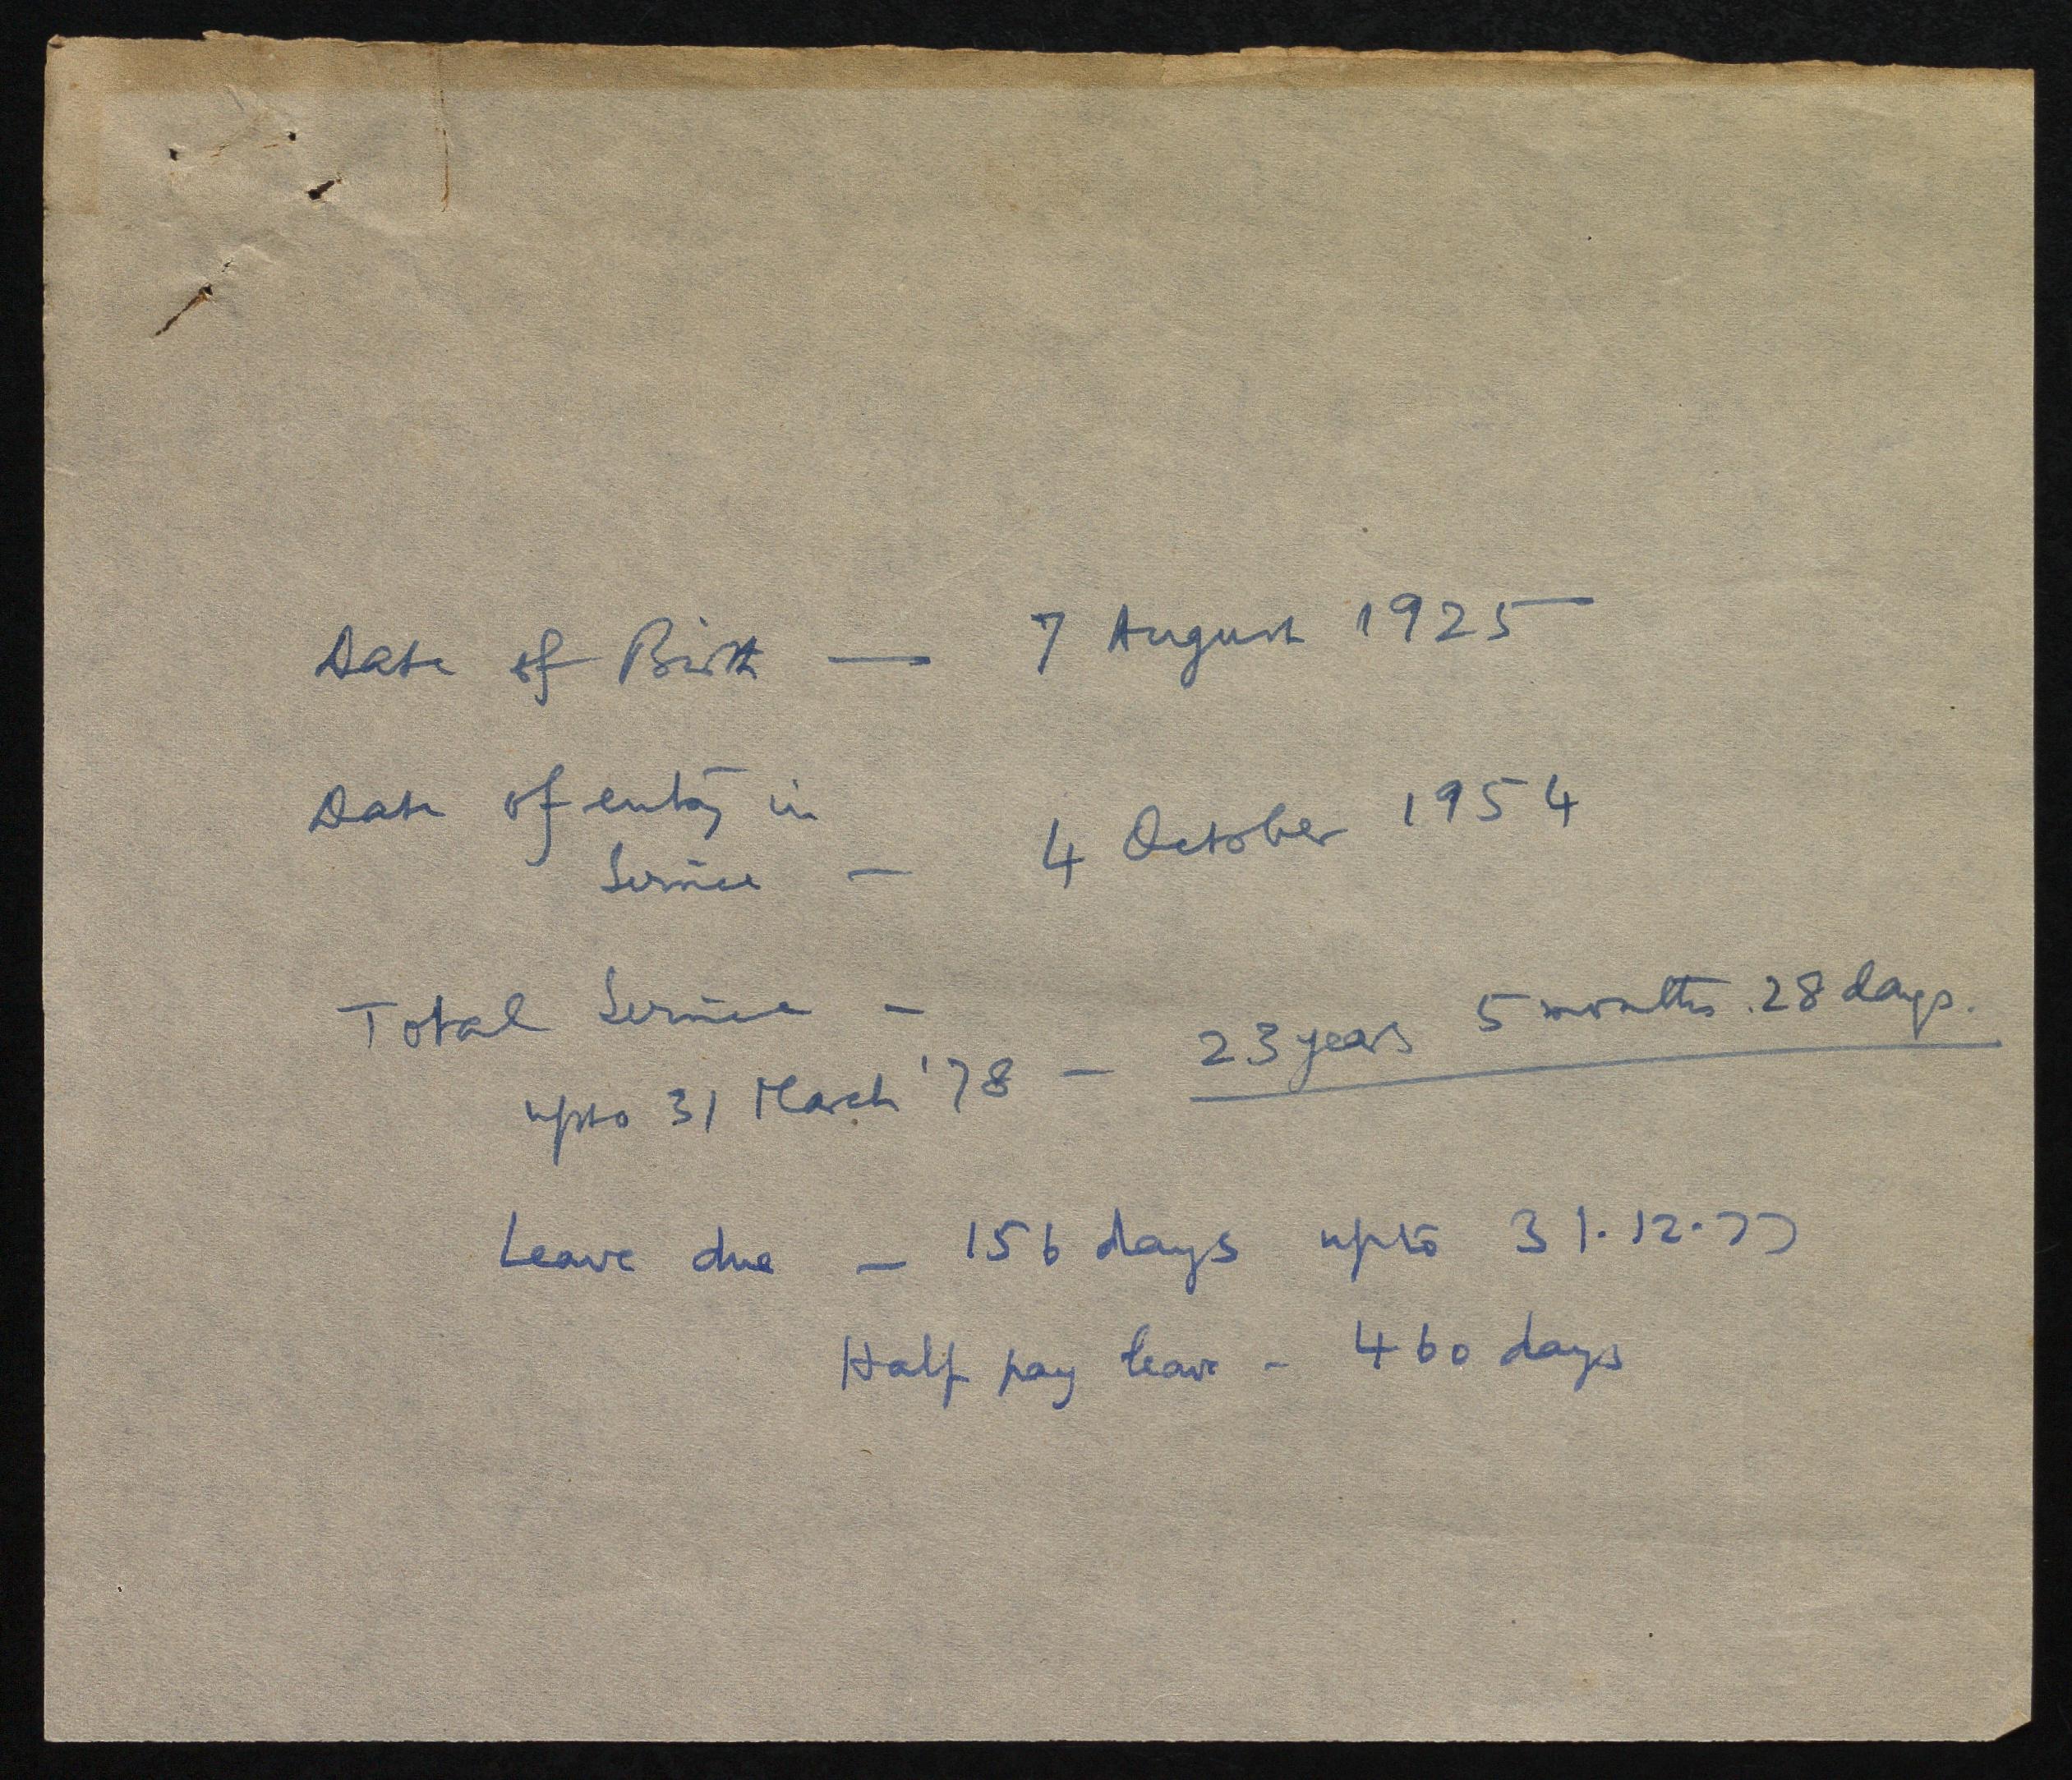 Date of Birth — 7 August 1925
Date of entry in
Service — 4 October 1954
Total Service –
upto 31 March '78 – 23 years 5 months. 28 days.
Leave due – 156 days upto 31.12.77
Half pay leave - 460 days